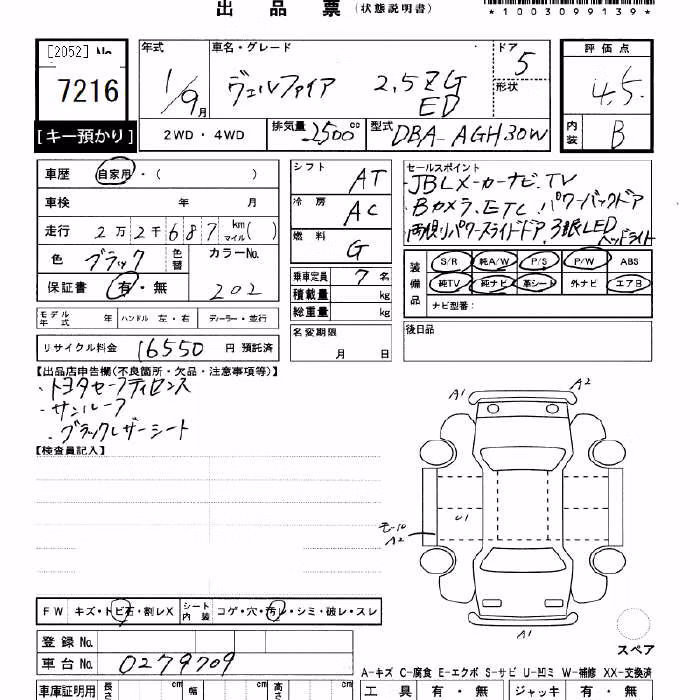 出品票(状態説明書)
*1003099139*
[2052] No.
7216
[キー預かり]
年式 1/9月
車名・グレード ヴェルファイア 2.5ZG ED
ドア 5
形状
評価点 4.5
内装 B
2WD・4WD
排気量 2500cc
型式 DBA-AGH30W
車歴 自家用・( )
車検 年 月
走行 2万2千687 km マイル( )
色 ブラック 色替
カラーNo. 202
保証書 有・無
モデル年式 年 ハンドル 左・右 ディーラー・並行
リサイクル料金 16550 円 預託済
シフト AT
冷房 AC
燃料 G
乗車定員 7名
積載量 kg
総重量 kg
名変期限
月 日
セールスポイント
JBLメーカーナビ.TV
Bカメラ.ETC パワーバックドア
両側パワースライドドア.3眼LED
ヘッドライト
装備品
S/R 純A/W P/S P/W ABS
純TV 純ナビ 革シート 外ナビ エアB
ナビ型番:
後日品
【出品店申告欄(不良箇所・欠品・注意事項等)】
・トヨタセーフティセンス
・サンルーフ
・ブラックレザーシート
【検査員記入】
A1
A2
モ-10
A2
U1
A1
スペア
FW キズ・トビ石・割レX
シート内装 コゲ・穴・汚レ・シミ・破レ・スレ
登録No.
車台No. 0279709
車庫証明用 長さ cm 幅 cm 高さ cm
A-キズ C-腐食 E-エクボ S-サビ U-凹ミ W-補修 XX-交換済
工具 有・無 ジャッキ 有・無